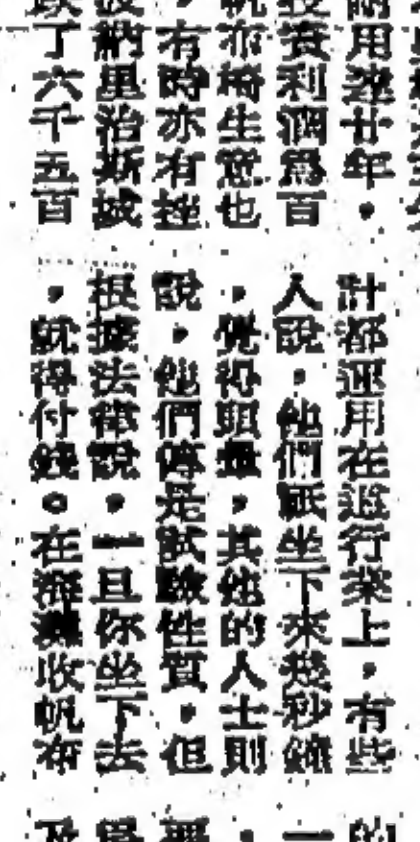 耐用達廿年。
投資利潤爲百
帆布椅生意也
,有時亦有挫
披納里治斯城
跌了六千五百
計都運用在這行業上,有些
人說,他們祇坐下來幾秒鐘
,覺得頭,其他的人士則
說,他們是試驗性質,但
根據法律說,一旦你坐下去
,就得付錢。在海灘收帆布
的
一
,